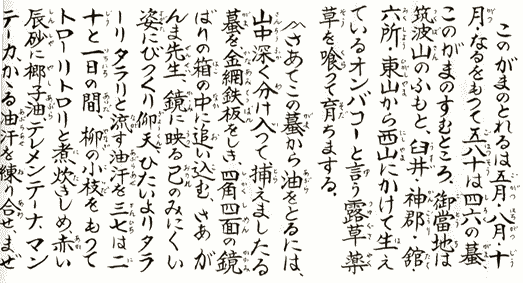 このがまのとれるは五月・八月・十
月・なるをもつて五八十は四六の蟇、
このがまのすむところ、御當地は
筑波山のふもと、臼井・神郡・館・
六所・東山から西山にかけて生え
ているオンバコーと言う露草薬
草を喰って育ちまする。
〽さあてこの蟇から油をとるには、
山中深く分け入つて捕えましたる
蟇を金網鉄板をしき、四角四面の鏡
ばりの箱の中に追い込む、さあが
んま先生、鏡に映る己のみにくい
姿にびつくり仰天、ひたいよりタラ
ーリタラリと流す油汗を三七は二
十と一日の間、柳の小枝をもつて
トローリトロリと煮炊きしめ赤い
辰砂に椰子油テレメンテーナ、マン
テーカ、かゝる油汗を練り合せ、まぜ